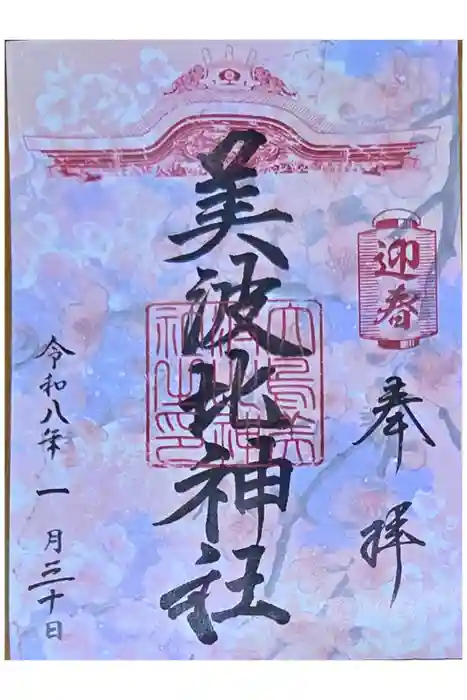 迎春
奉拝
美波比神社
大鳥美
波比神
社之印
令和八年一月三十日